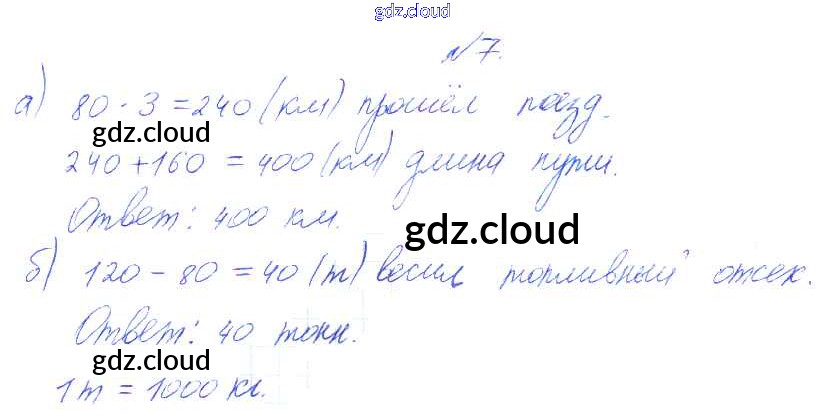 gdz.cloud
№7.
а) 80 · 3 = 240 (км) прошёл поезд.
gdz.cloud
240 + 160 = 400 (км) длина пути.
Ответ: 400 км.
gdz.cloud
б) 120 - 80 = 40 (т) весил топливный отсек.
Ответ: 40 тонн.
gdz.cloud
1 т = 1000 кг.